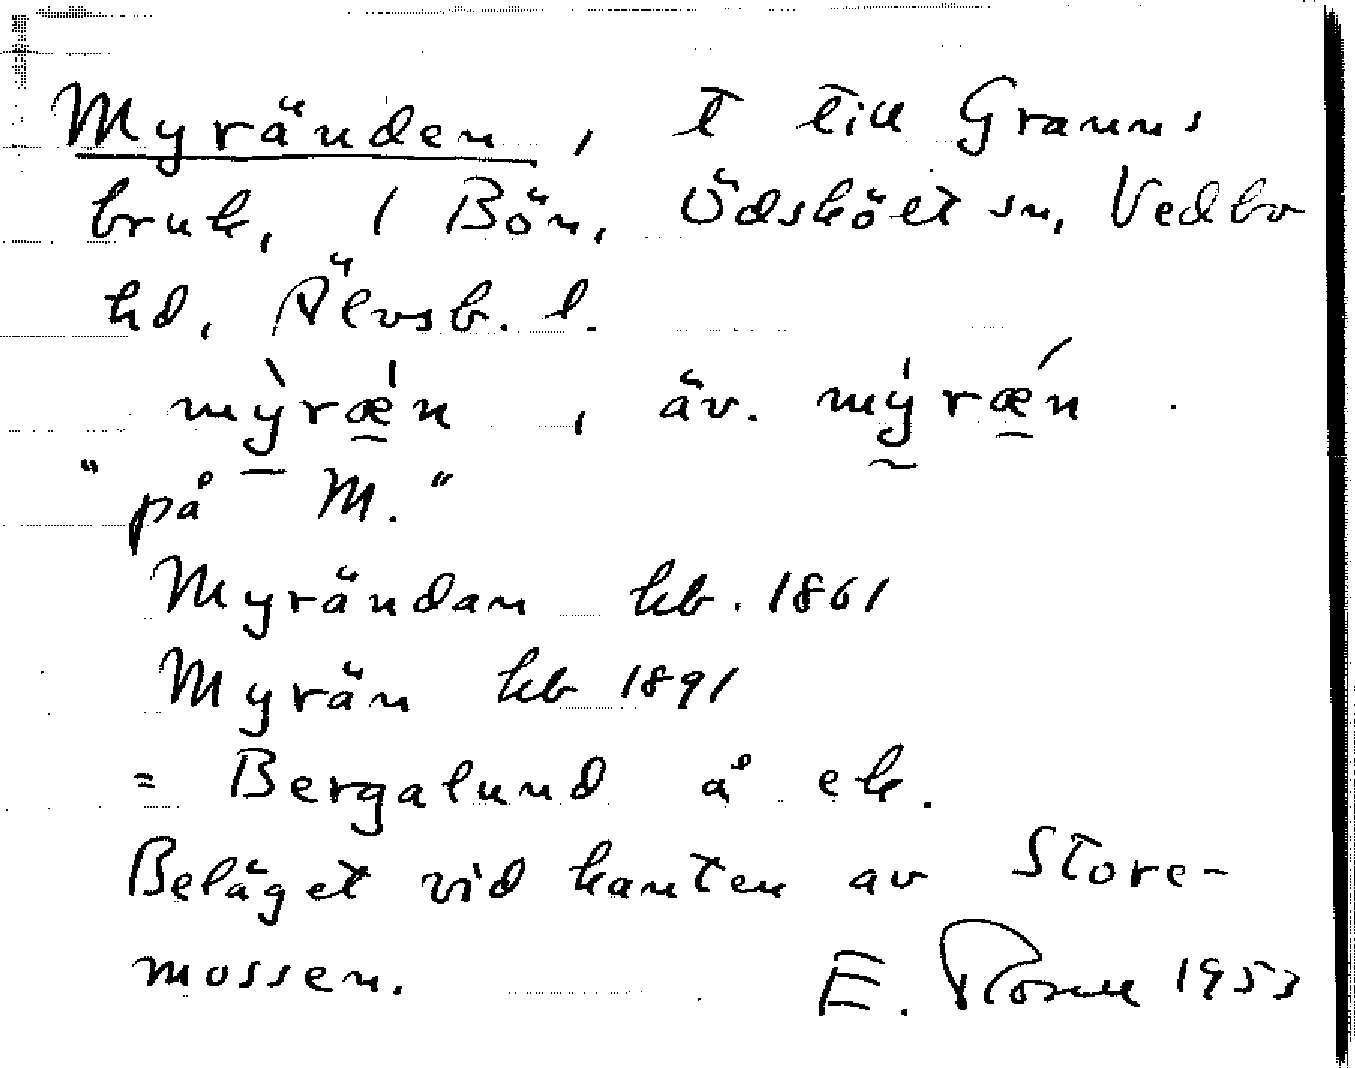 Myränden, t till Granns
bruk, / Bön, Ödskölt sn, Vedbo
hd, Älvsb. l.
mỳ̠rǽ̠n , äv. mý̰rǽ̠n
"på M."
Myrändan hb. 1861
Myrän hb 1891
= Bergalund å ek.
Beläget vid kanten av Store-
mossen. E. Rosell 1953